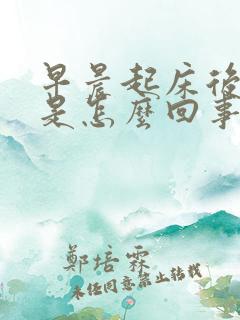 早晨起床後
是怎麼回事
鄭培霖
未任同意禁止轉載